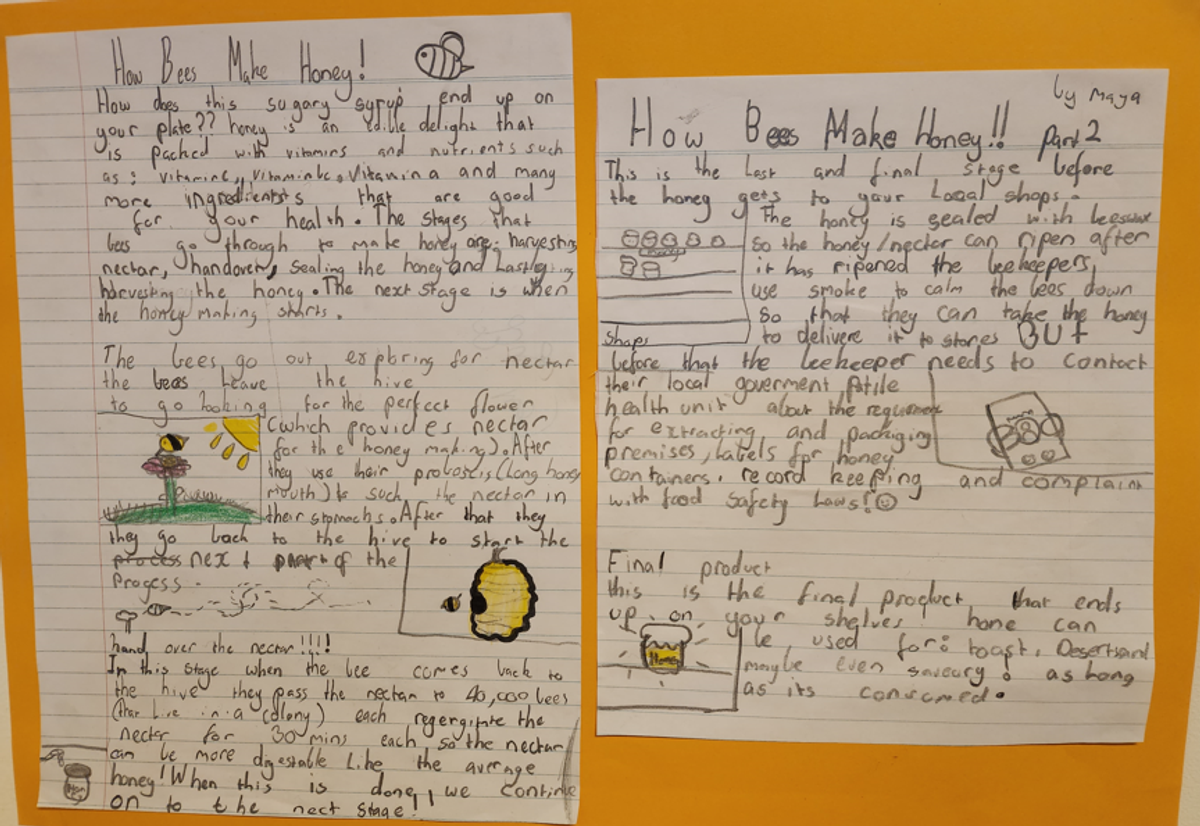 How Bees Make Honey!
How does this sugary syrup end up on
your plate?? honey is an edible delight that
is packed with vitamins and nutrients such
as: vitamin c, vitamin bc, Vitamin a and many
more ingredientsts that are good
for your health. The stages that
bees go through to make honey are: harvesting
nectar, handover, sealing the honey and Lastly
harvesting the honey. The next stage is when
the honey making starts.
The bees go out exploring for nectar
the bees Leave the hive
to go Looking for the perfect flower
(which provides nectar
for the honey making). After
they use their (Long honey
mouth) to such the nectar in
their stomachs. After that they
they go back to the hive to start the
process next part of the
Progess.
hand over the nectar!!!!
In this stage when the bee comes back to
the hive they pass the nectar to 40,000 bees
(that Live in a colony) each regergitate the
nectar for 30 mins each so the nectar
can be more digestable Like the average
honey! When this is done, we continue
on to the nect stage!!
by Maya
How Bees Make Honey!! part 2
This is the Last and final stage before
the honey gets to your Local shops.
The honey is sealed with beeswax
so the honey/nectar can ripen after
it has ripened the beekeepers,
use smoke to calm the bees down
so that they can take the honey
Shops
to delivere it to stores BUt
before that the beekeeper needs to contact
their local goverment
health unit about the
for extracting and packaging
premises, Labels for honey
containers, record keeping and complaint
with food safety Laws!
Final product
this is the final product that ends
up on your shelves! hone can
Honey
be used for: toast, Desertsand
maybe even savoury! as Long
as its consumed.